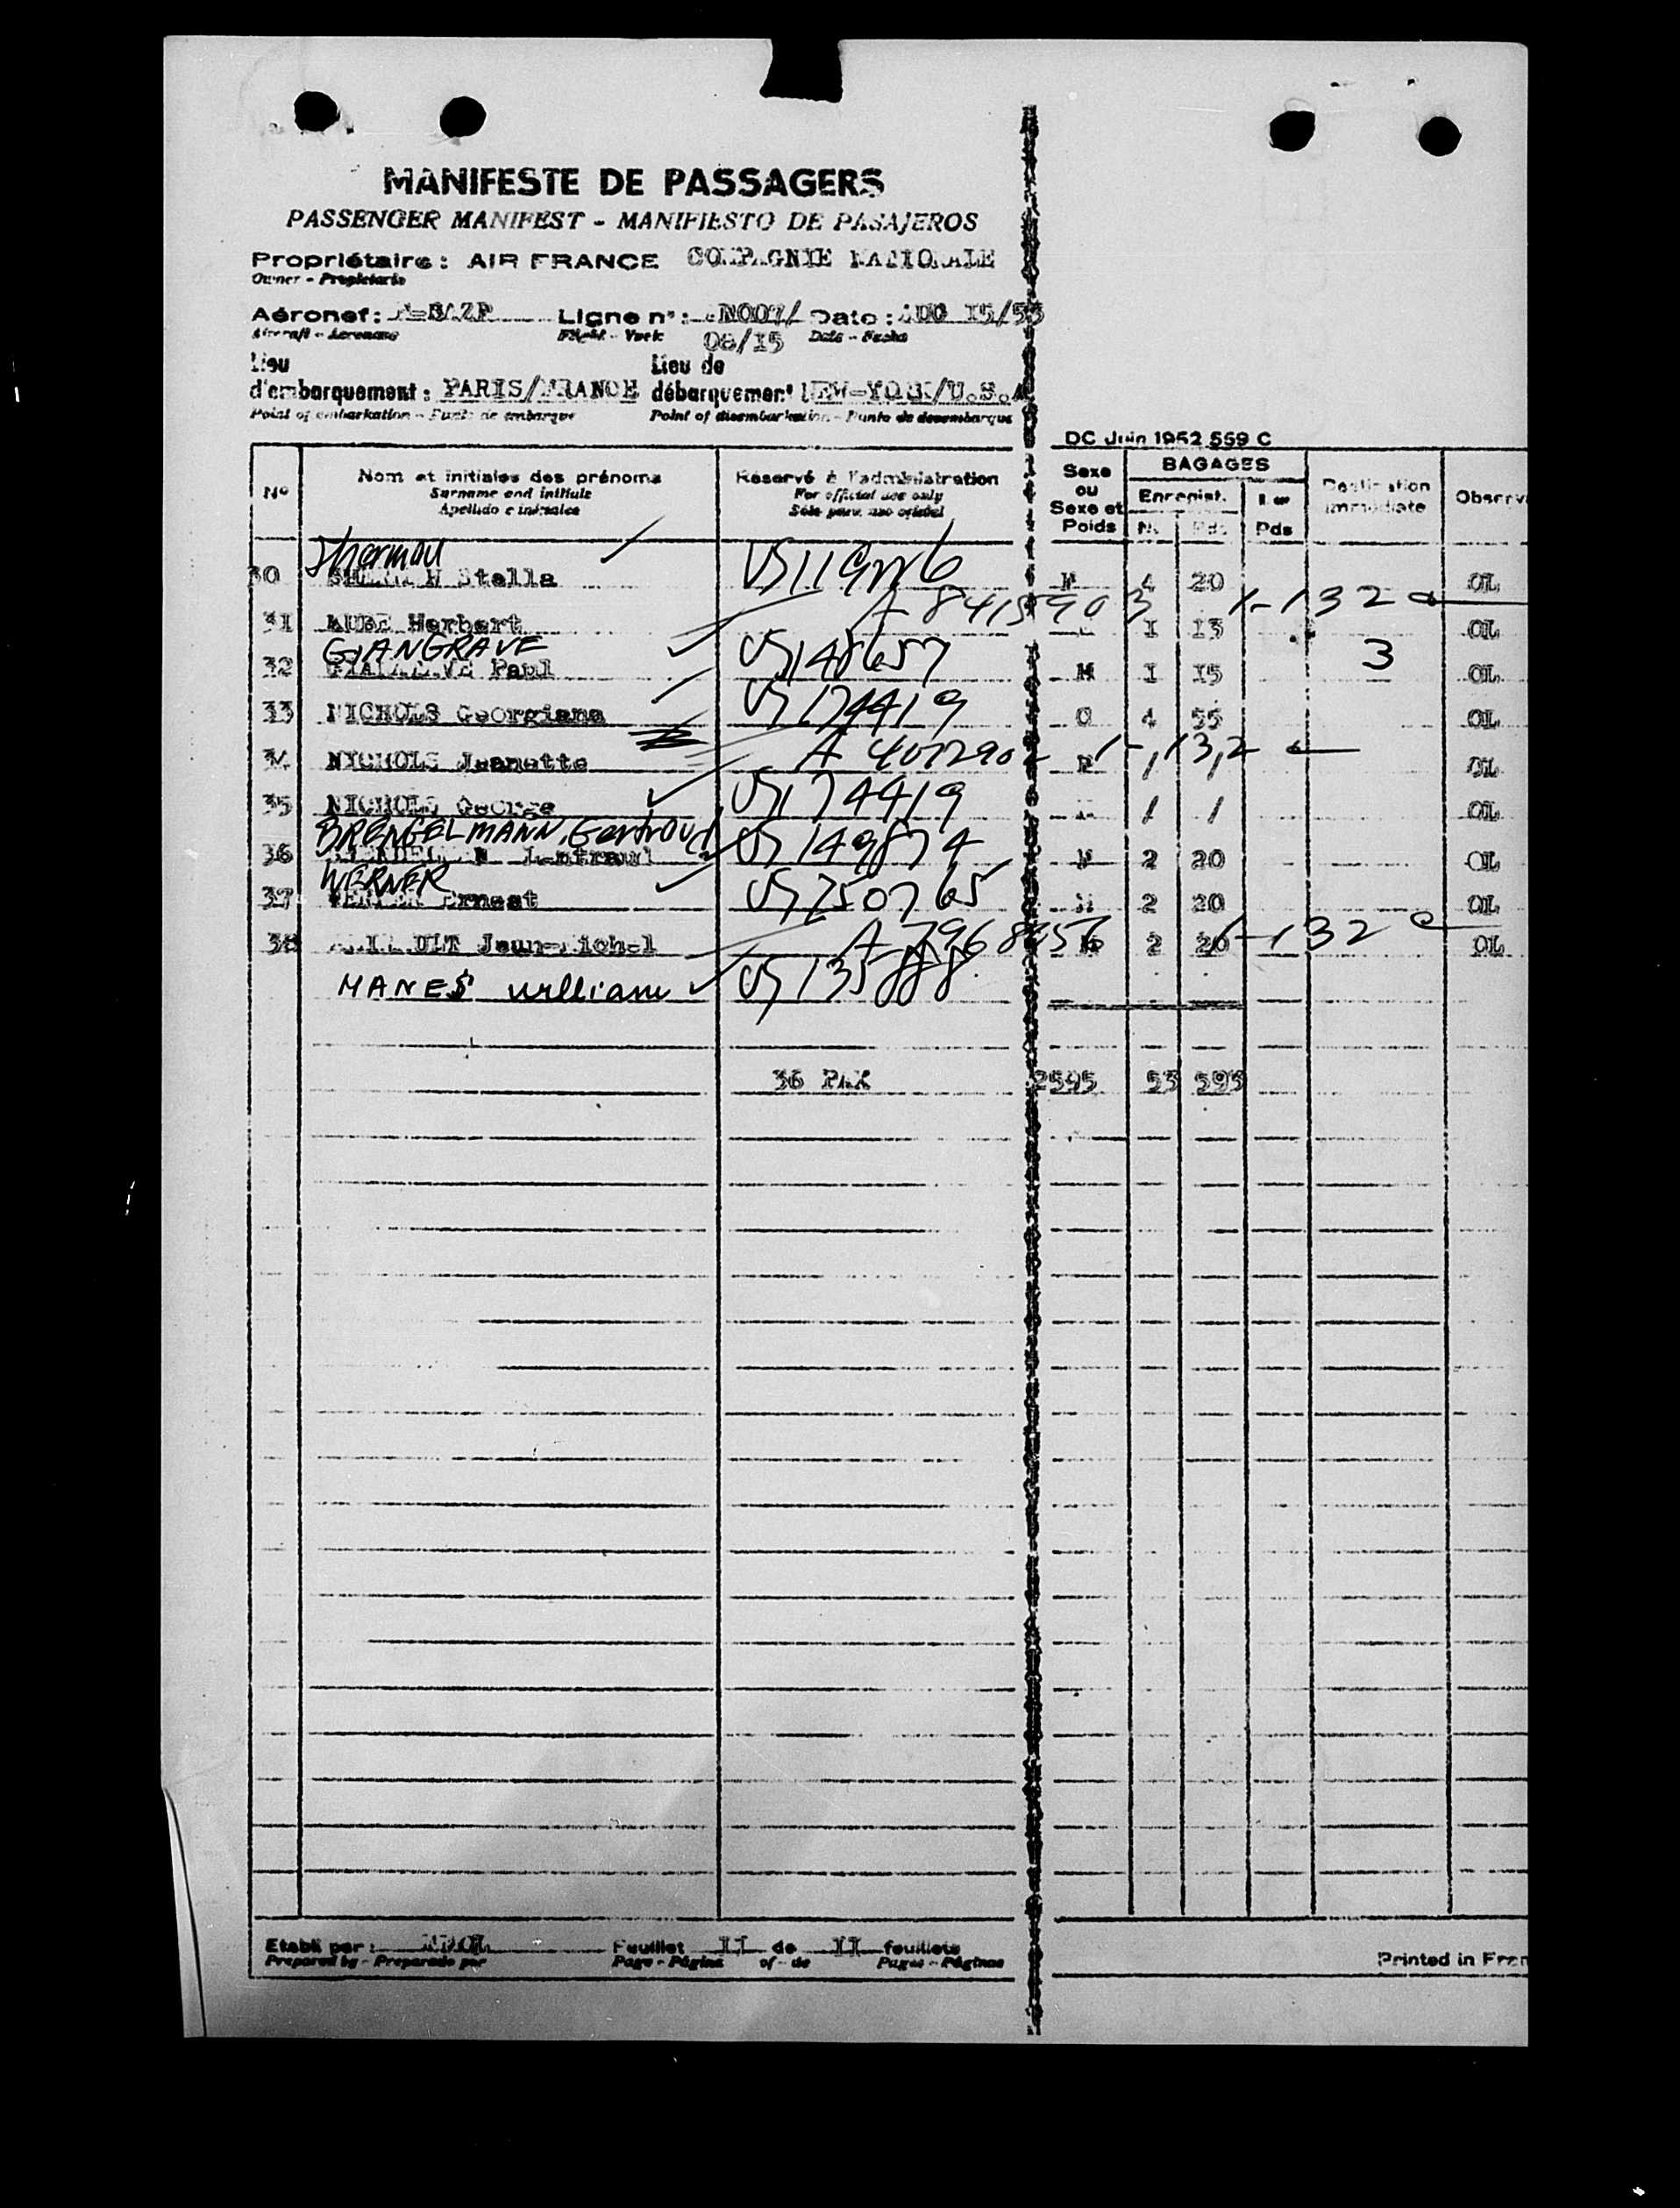 MANIFESTE DE PASSAGERS
PASSENGER MANIFEST - MANIFIESTO DE PASAJEROS
Propriétaire : AIR FRANCE COMPAGNIE NATIONALE
Owner - Propietario
Aéronef : Ligne n° : Date : AUG 15/53
Aircraft - Aeronave Flight - Date - Fecha
08/15
Lieu Lieu de
d'embarquement : PARIS/FRANCE débarquement NEW-YORK/U.S.A
Point of embarkation - Punto de embarque Point of disembarkation - Punto de desembarque
DC Juin 1952 559 C
N° Nom et initiales des prénoms Réservé à l'administration Sexe ou Sexe et Poids BAGAGES Destination immédiate
Surname and initials For official use only Enregist. N. Pds
Apellido e iniciales Pds
Sherman
30 Stella US119226 4 20 OL
A-8415903 1-132
31 Herbert I I3 OL
GIANGRAVE
32 Paul US148657 M I I5 3 OL
33 NICHOLS Georgiana US174419 4 55 OL
A 4072902 1-13,2
34 NICHOLS Jeanette / / OL
35 NICHOLS George US174419 / / OL
BRENGELMANN, Gertraud
36 US149874 2 20 OL
WERNER
37 Ernest US250765 2 20 OL
A-7968456 1-132
38 Jean-Michel 2 20 OL
MANES William US135888
36 PAX 2595 53 593
Etabli par : Feuillet II de II feuillets
Prepared by - Preparado por Page - Página of - de Pages - Páginas
Printed in Fran